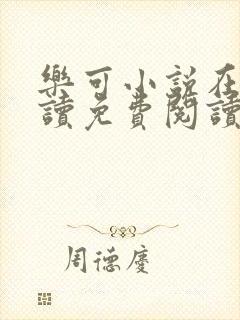 樂可小說在
讀免費閱讀
周德慶